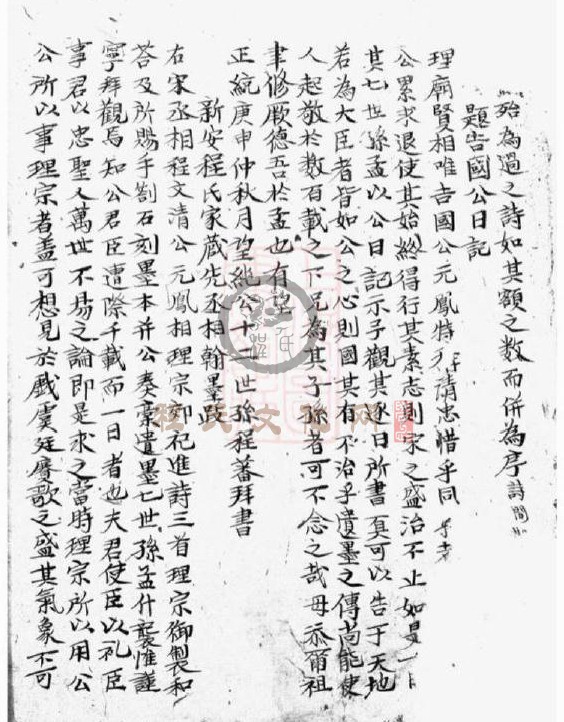 殆為過之詩如其額之數而併為序詩間
題吉國公日記
理廟賢相唯吉國公元鳳特清忠惜乎同
公累求退使其始終得行其素志則宋之盛治不止如是
其七世孫孟以公日記示予觀其逐日所書真可以告于天地
若為大臣者皆如公之心則國其有不治乎遺墨之傳尚能使
人起敬於數百載之下况為其子孫者可不念之哉毋忝爾祖
聿修厥德吾於孟也有望
正統庚申仲秋月望繩公十二世孫程蕃拜書
新安程氏家藏先丞相翰墨跋
右宋丞相程文清公元鳳相理宗郊祀進詩三首理宗御製和
荅及所賜手劄石刻墨本并公奏藁遺墨七世孫孟什襲惟謹
寧拜觀焉知公君臣遭際千載而一日者也夫君使臣以礼臣
事君以忠聖人萬世不易之論即是求之當時理宗所以用公
公所以事理宗者盖可想見於戲虞廷賡歌之盛其氣象不可
程氏文化网